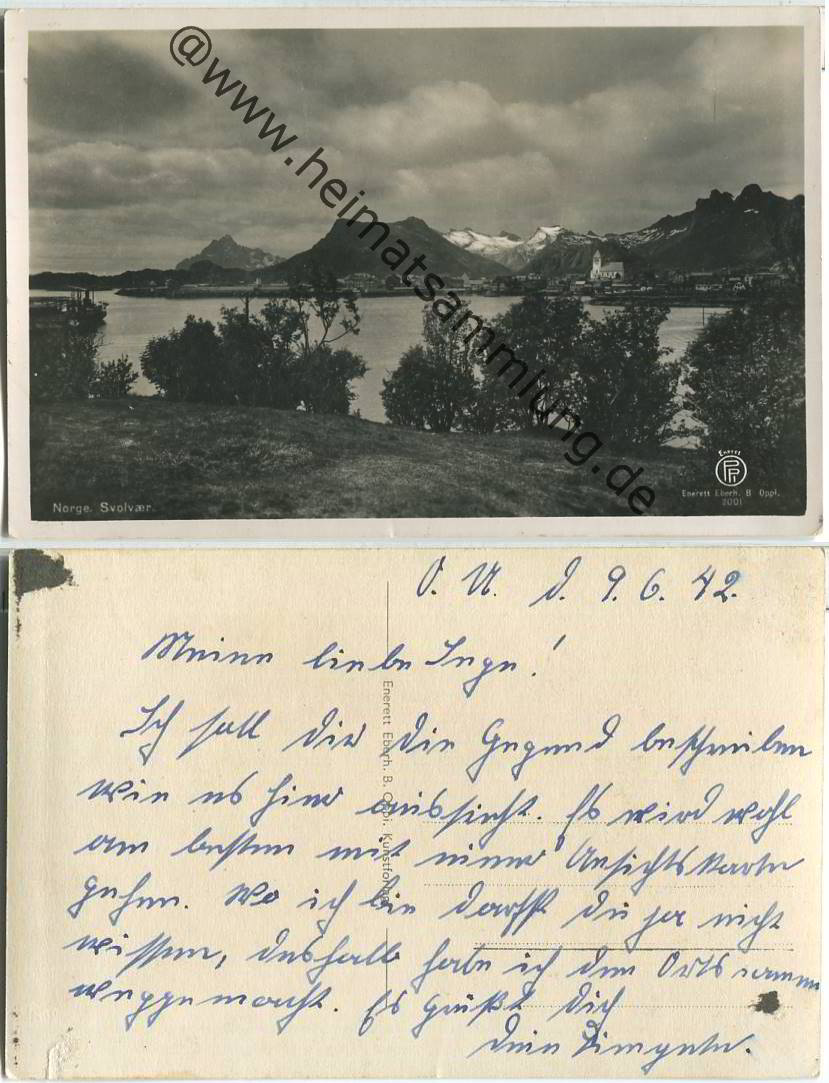 @www.heimatsammlung.de
Enerett
PP
Norge. Svolvær.
Enerett Eberh. B. Oppi.
2001
O. U. d. 9. 6. 42.
Meine liebe Inge!
Ich soll dir die Gegend beschreiben
wie es hier aussieht. Es wird wohl
am besten mit einer Ansichtskarte
gehen. Wo ich bin darfst du ja nicht
wissen, deshalb habe ich den Ortsnamen
weggemacht. Es grüßt dich
dein
Enerett Eberh. B. Oppi. Kunstforlag